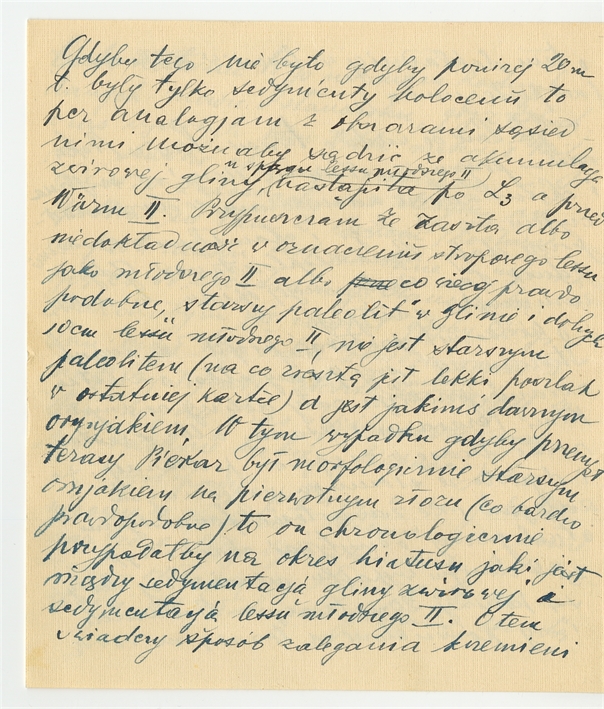 Gdyby tego nie było gdyby poniżej 20 m
t. były tylko sedymenty holoceniś to
per analogiam z obszarami sąsied
nimi możnaby sądzić że akumulacja
"w spągu lessu młodszego II"
żwirowej gliny, nastąpiła po L3 a przed
Würm II. Przypuszczam że zaszła albo
niedokładność w oznaczeniu stropowego lessu
jako młodszego II albo co więcej prawdo
podobne, "starszy paleolit" w glinie i dolnych
10cm lessu młodszego II, nie jest starszym
paleolitem (na co zresztą jest lekki poszlak
w ostatniej kartce) a jest jakimś dawnym
orynjakiem. W tym wypadku gdyby przemysł
terasy Piekar był morfologicznie starszym
orinjakiem na pierwotnym złożu (co bardzo
prawdopodobne) to on chronologicznie
przypadałby na okres hiatusu jaki jest
między sedymentacją gliny żwirowej a
sedymentacją lessu młodszego II. O tem
świadczy sposób zalegania krzemieni